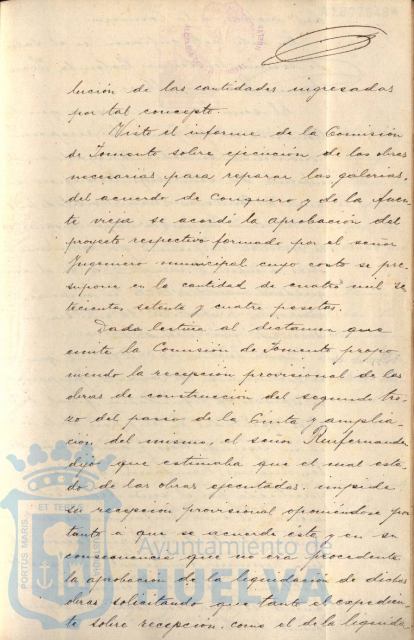 lución de las cantidades ingresadas
por tal concepto.
Visto el informe de la Comisión
de Fomento sobre ejecución de las obras
necesarias para reparar las galerias,
del acuerdo de Conquero y de la fuen-
te vieja se acordó la aprobación del
proyecto respectivo formado por el señor
Ingeniero municipal cuyo costo se pre-
supone en la cantidad de cuatro mil se-
tecientas setenta y cuatro pesetas.
Dada lectura al dictamen que
emite la Comisión de Fomento propo-
niendo la recepción provisional de las
obras de construcción del segundo tro-
zo del paseo de la Cinta y amplia-
ción del mismo, el señor Ruifernandez
dijo que estimaba que el mal esta-
do de las obras ejecutadas impide
su recepción provisional oponiéndose por
tanto a que se acuerde ésta y en su
consecuencia que no era procedente
la aprobación de la liquidación de dichas
obras solicitando que tanto el expedien-
te sobre recepción como el de la liquida-
PORTUS MARIS ET TERRÆ CUSTODIA
Ayuntamiento de
HUELVA